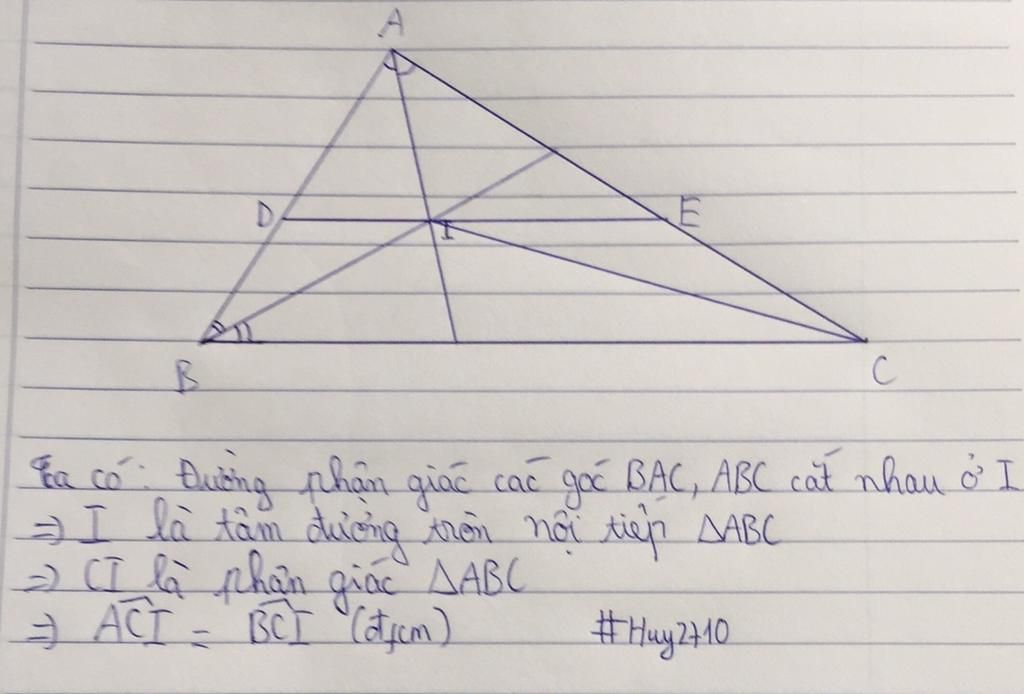 A
D
E
I
B
C
Ta có: Đường phân giác các góc BAC, ABC cắt nhau ở I
=> I là tâm đường tròn nội tiếp ΔABC
=> CI là phân giác ΔABC
=> \widehat{ACI} = \widehat{BCI} (đpcm) #Huy2710